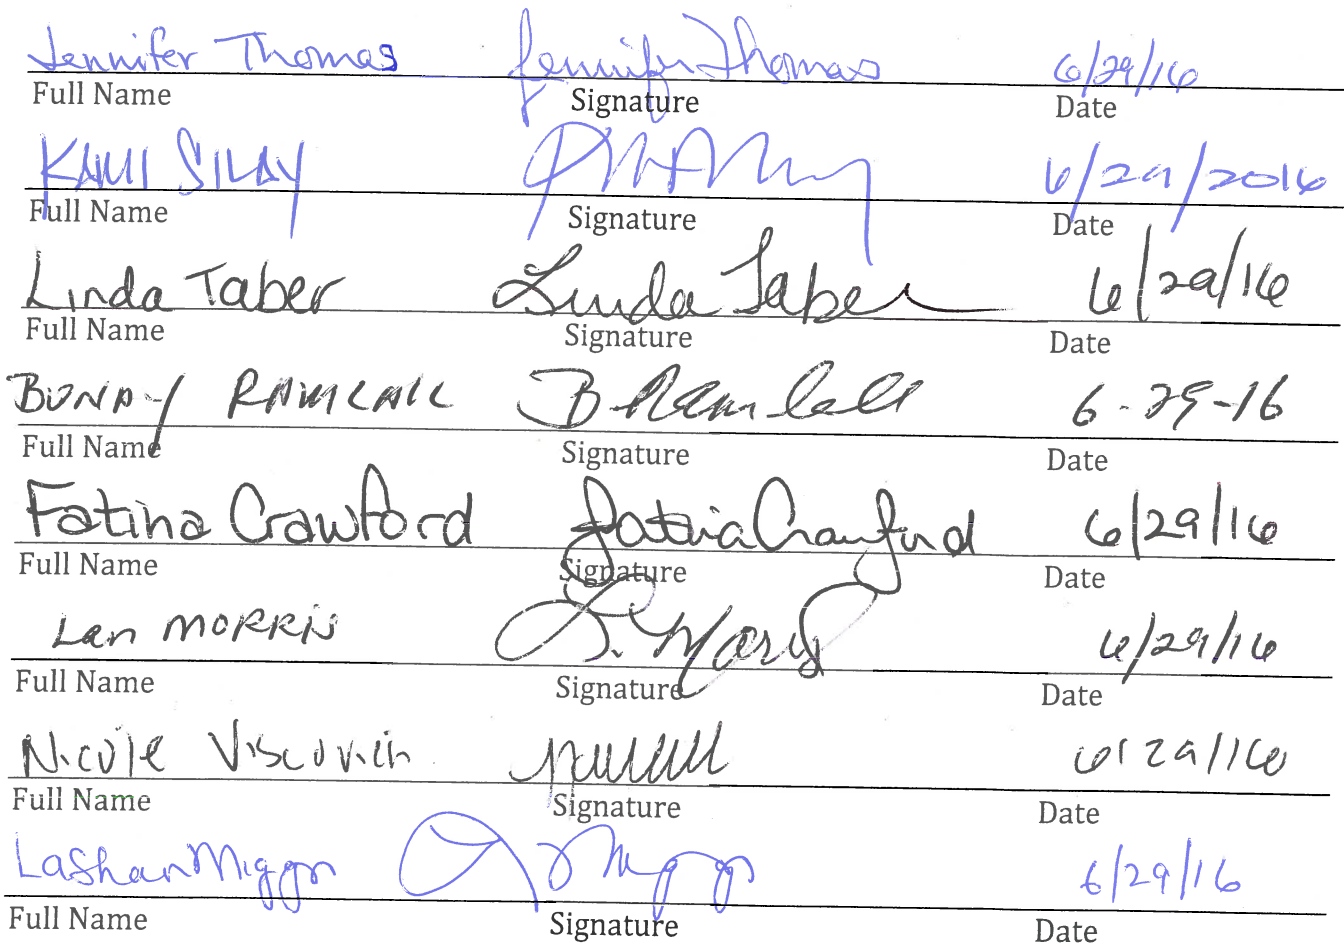 Jennifer Thomas Jennifer Thomas 6/29/16
Full Name Signature Date
KAMI SILAY 6/29/2016
Full Name Signature Date
Linda Taber Linda Taber 6/29/16
Full Name Signature Date
6-29-16
Full Name Signature Date
Fatina Crawford Fatina Crawford 6/29/16
Full Name Signature Date
Lan MORRIS L. Morris 6/29/16
Full Name Signature Date
Nicole Viscovich 6/29/16
Full Name Signature Date
LaShan Miggns 6/29/16
Full Name Signature Date